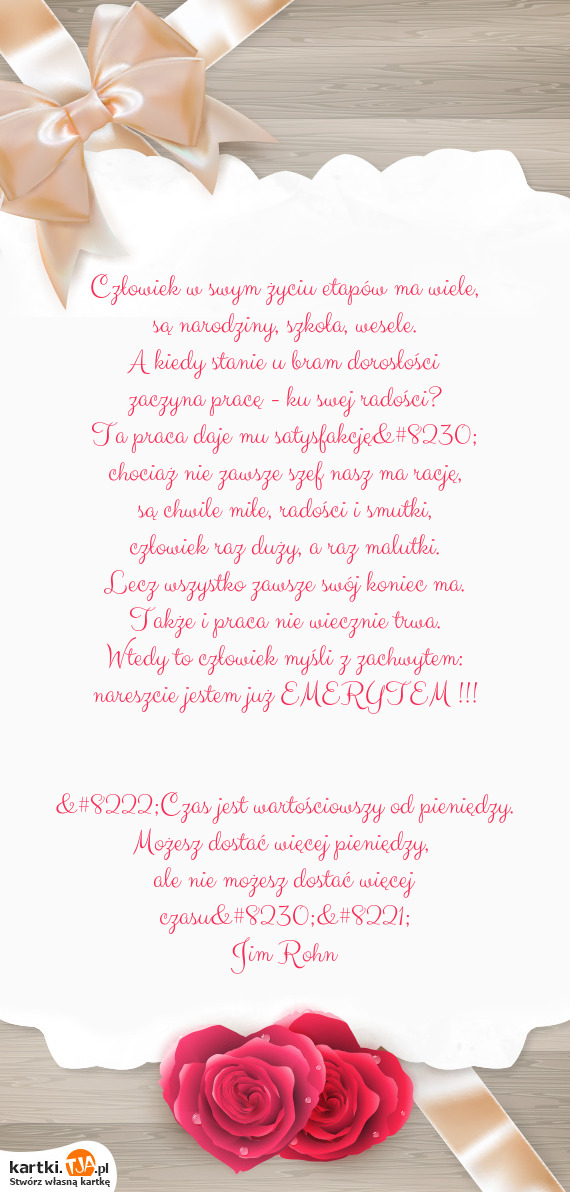 Człowiek w swym życiu etapów ma wiele,
są narodziny, szkoła, wesele.
A kiedy stanie u bram dorosłości
zaczyna pracę - ku swej radości?
Ta praca daje mu satysfakcję&#8230;
chociaż nie zawsze szef nasz ma rację,
są chwile miłe, radości i smutki,
człowiek raz duży, a raz malutki.
Lecz wszystko zawsze swój koniec ma.
Także i praca nie wiecznie trwa.
Wtedy to człowiek myśli z zachwytem:
nareszcie jestem już EMERYTEM !!!
&#8222;Czas jest wartościowszy od pieniędzy.
Możesz dostać więcej pieniędzy,
ale nie możesz dostać więcej
czasu&#8230;&#8221;
Jim Rohn
kartki.TJA.pl
Stwórz własną kartkę